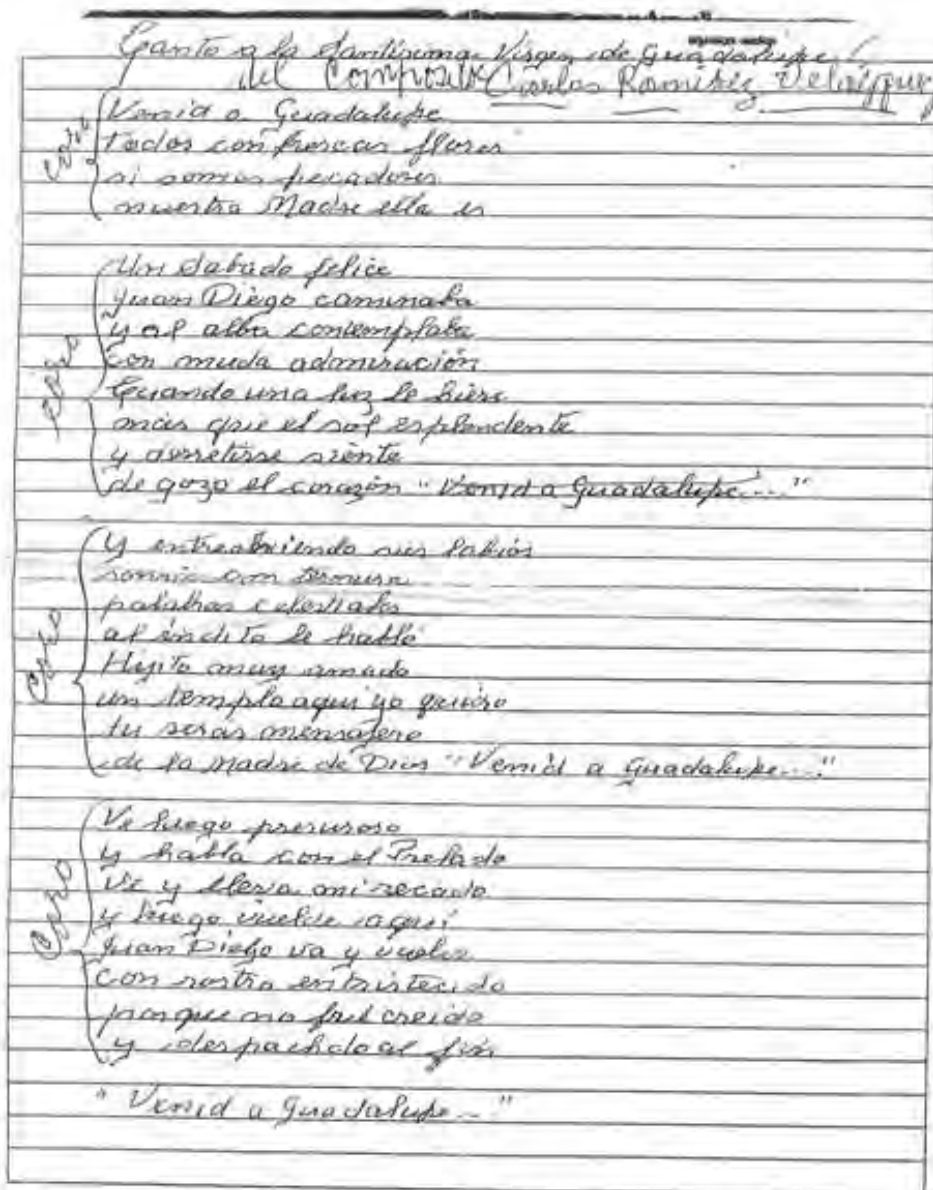 Canto a la Santísima Virgen de Guadalupe
del Compositor Carlos Ramírez Velázquez
Coro
Venid a Guadalupe
todos con frescas flores
si somos pecadores
nuestra Madre ella es
Coro
Un Sabado felice
Juan Diego caminaba
y al alba contemplaba
con muda admiración
Cuando una luz le hiere
más que el sol esplendente
y derretirse siente
de gozo el corazón "Venid a Guadalupe...."
Coro
Y entreabriendo sus labios
sonríe con ternura
palabras celestiales
al indito le habló
Hijito muy amado
un templo aqui yo quiero
tu seras mensajero
de la Madre de Dios "Venid a Guadalupe...."
Coro
Ve luego presuroso
y habla con el Prelado
Ve y lleva mi recado
y luego vuelve aquí
Juan Diego va y vuelve
con rostro entristecido
porque no fué creido
y despachdo al fin
"Venid a Guadalupe..."